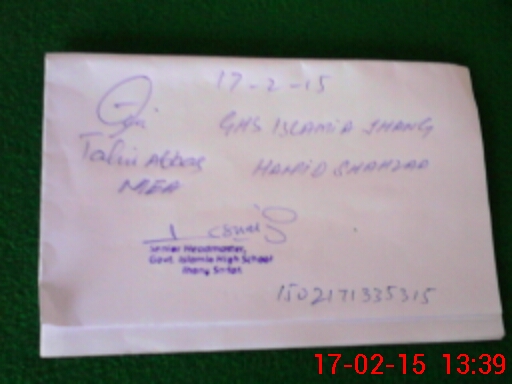 17-2-15
GHS ISLAMIA JHANG
Tahir Abbas
HAMID SHAHZAD
MEA
Senior Headmaster,
Govt. Islamia High School
Jhang Saddar
1502171335315
17-02-15 13:39